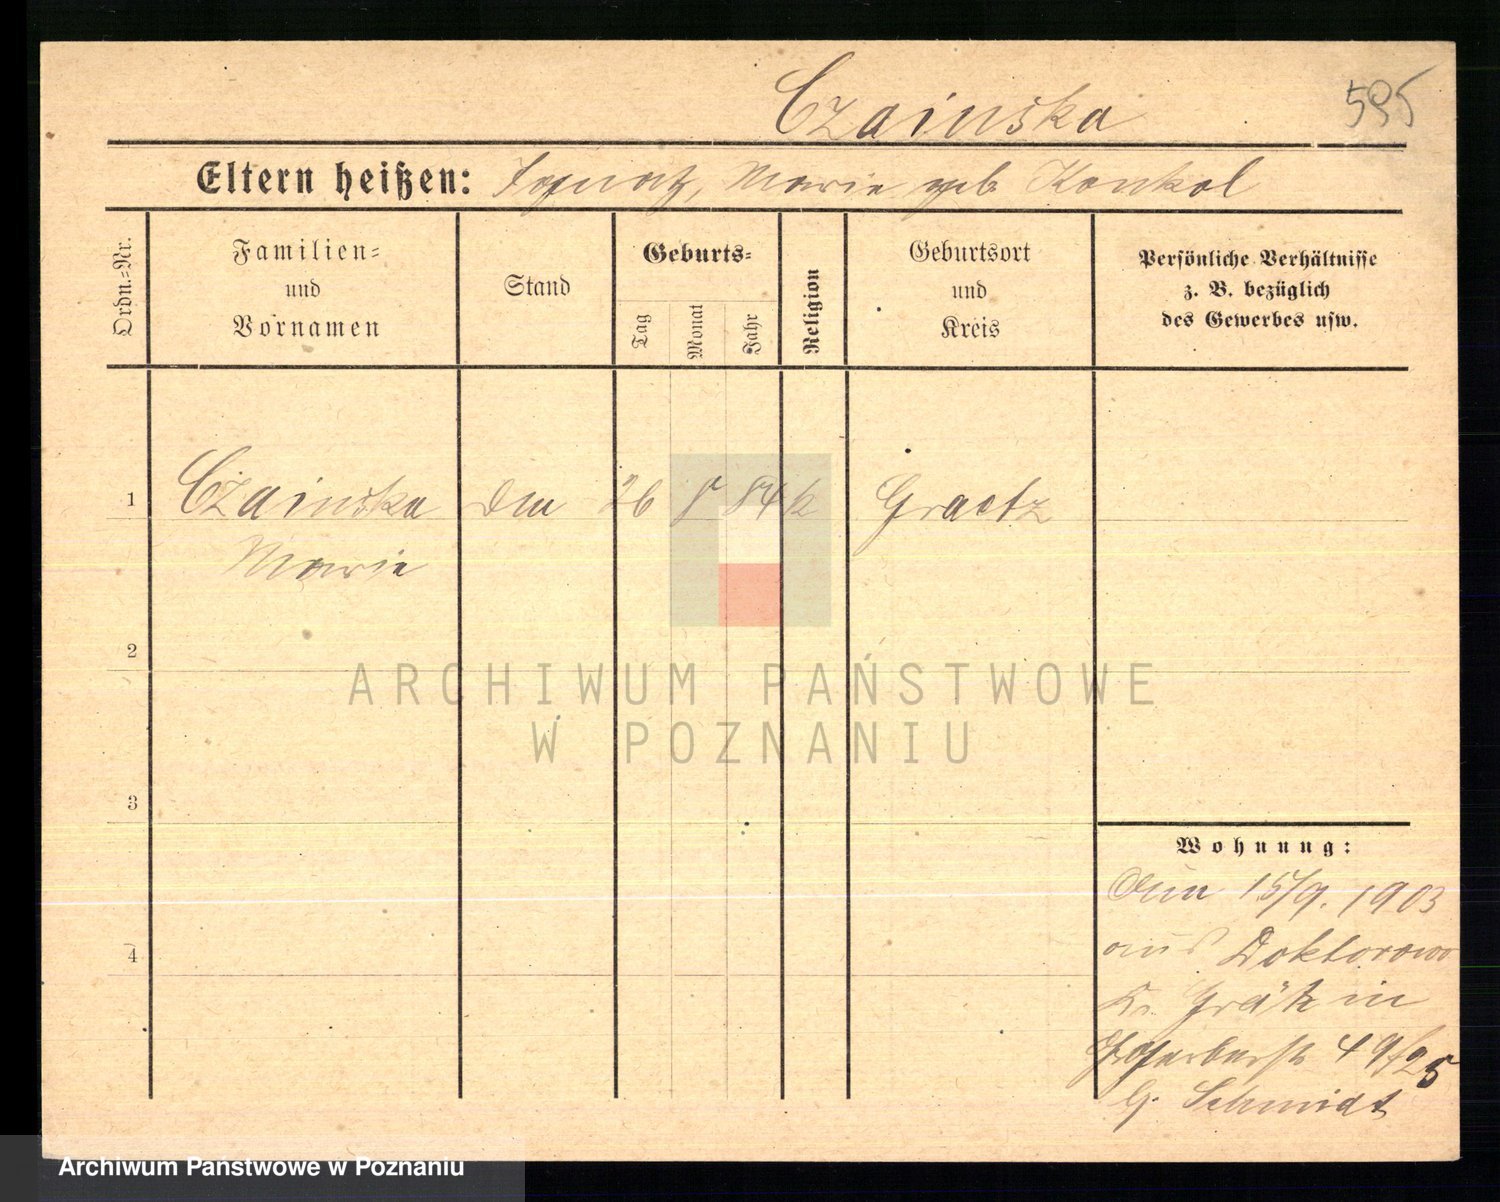 Czainska
595
Eltern heißen: Ignatz, Marie geb Konkol
Ordn.=Nr.
Familien=
und
Vornamen
Stand
Geburts=
Tag
Monat
Jahr
Religion
Geburtsort
und
Kreis
Persönliche Verhältnisse
z. B. bezüglich
des Gewerbes usw.
1 Czainska 26 8 84 k Graetz
Marie
2
ARCHIWUM PAŃSTWOWE
W POZNANIU
3
Wohnung:
15/9. 1903
4
aus Doktorowo
Kr. Grätz in
49/25
G. Schmidt
Archiwum Państwowe w Poznaniu